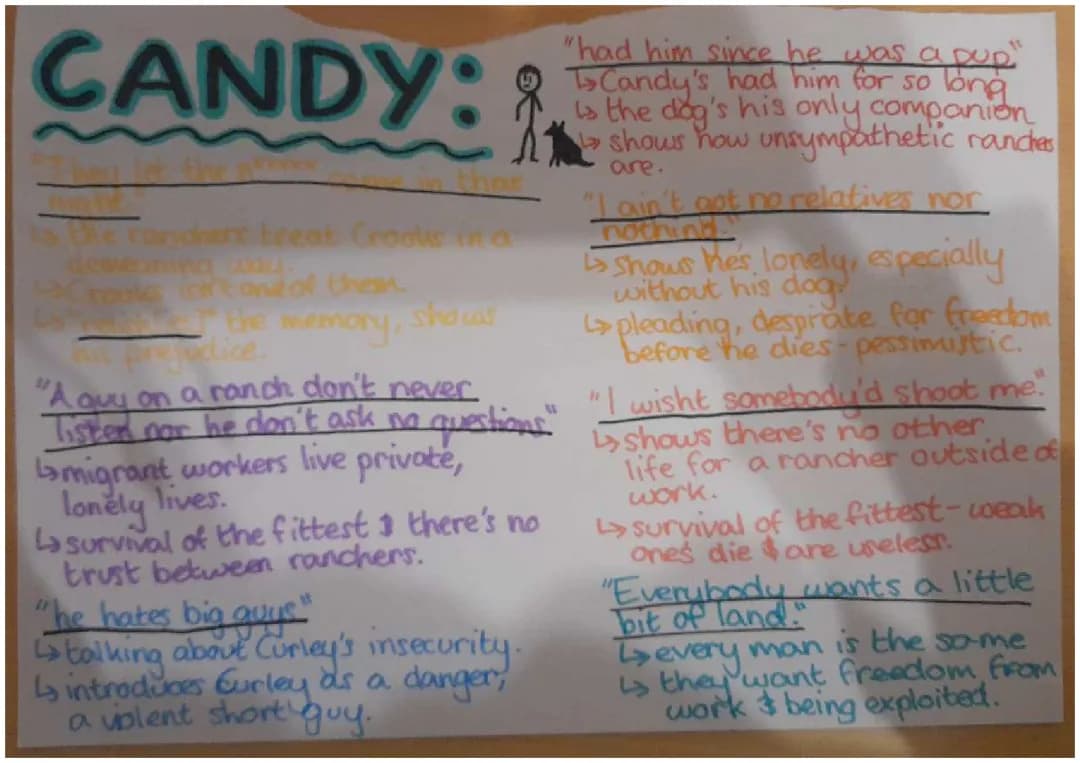 CANDY:
"They let the n***** come in that
night."
↳ the ranchers treat Crooks in a
demeaning way.
↳ Crooks isn't one of them.
the memory, shows
his prejudice.
"A guy on a ranch don't never
listen nor he don't ask no questions"
↳ migrant workers live private,
lonely lives.
↳ survival of the fittest & there's no
trust between ranchers.
"he hates big guys"
↳ talking about Curley's insecurity.
↳ introduces Curley as a danger,
a violent short guy.
"had him since he was a pup"
↳ Candy's had him for so long
↳ the dog's his only companion
↳ shows how unsympathetic ranches
are.
"I ain't got no relatives nor
nothing."
↳ shows he's lonely, especially
without his dog.
↳ pleading, desprate for freedom
before he dies - pessimistic.
"I wisht somebody'd shoot me."
↳ shows there's no other
life for a rancher outside of
work.
↳ survival of the fittest - weak
ones die & are useless.
"Everybody wants a little
bit of land."
↳ every man is the same
↳ they want freedom from
work & being exploited.